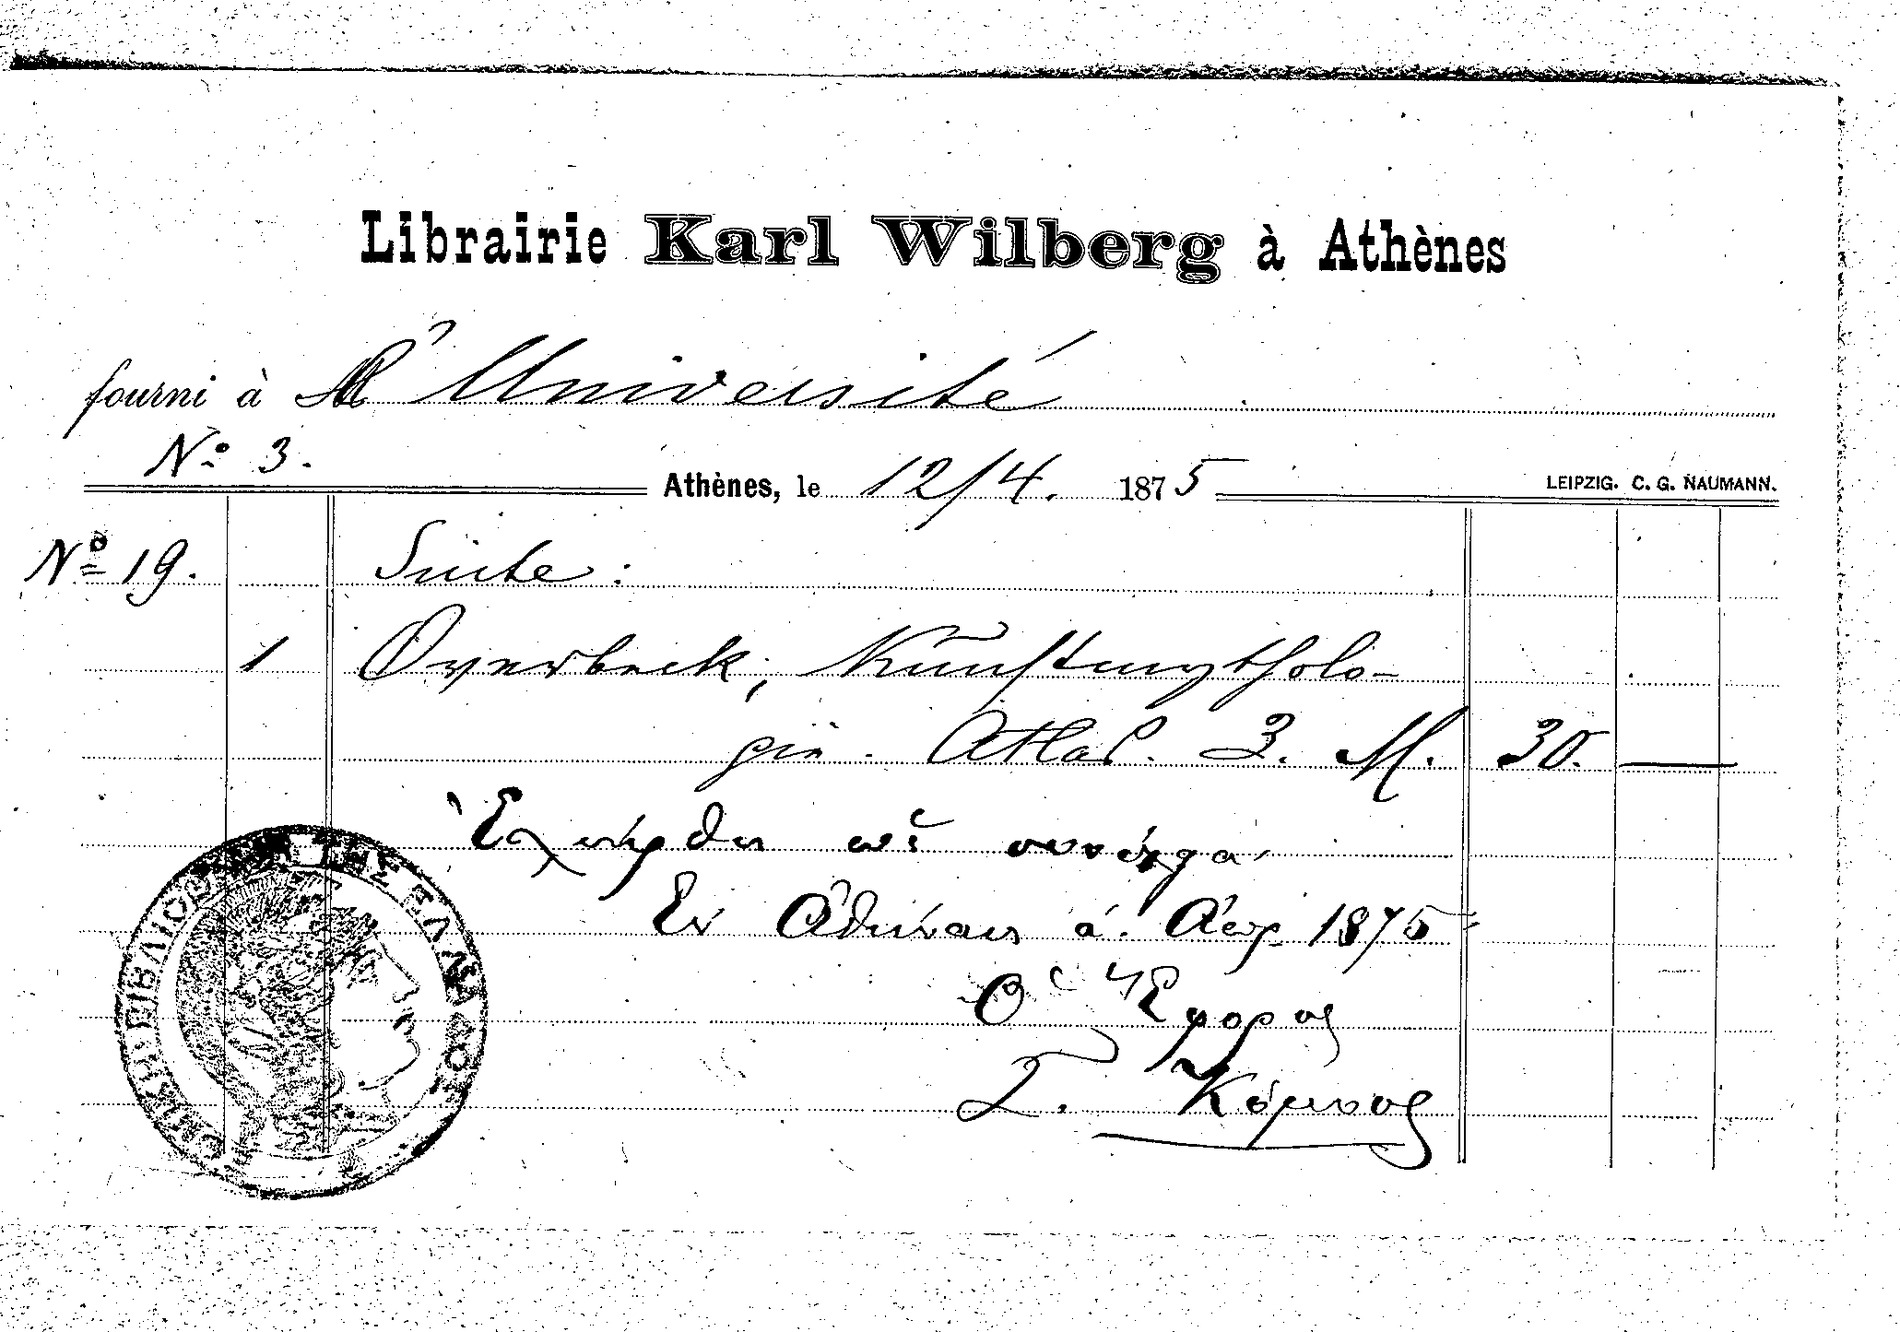 Librairie Karl Wilberg à Athènes
fourni à l'Université
No 3.
Athènes, le 12/4. 1875
LEIPZIG. C. G. NAUMANN.
No 19. Suite:
1 Overbeck, Kunstmytholo-
gie. Atlas. 3. M. 30. —
Ἐλήφθη
Ἐν Ἀθήναις 1875
Ὁ Ἔφορος
Κόμνος